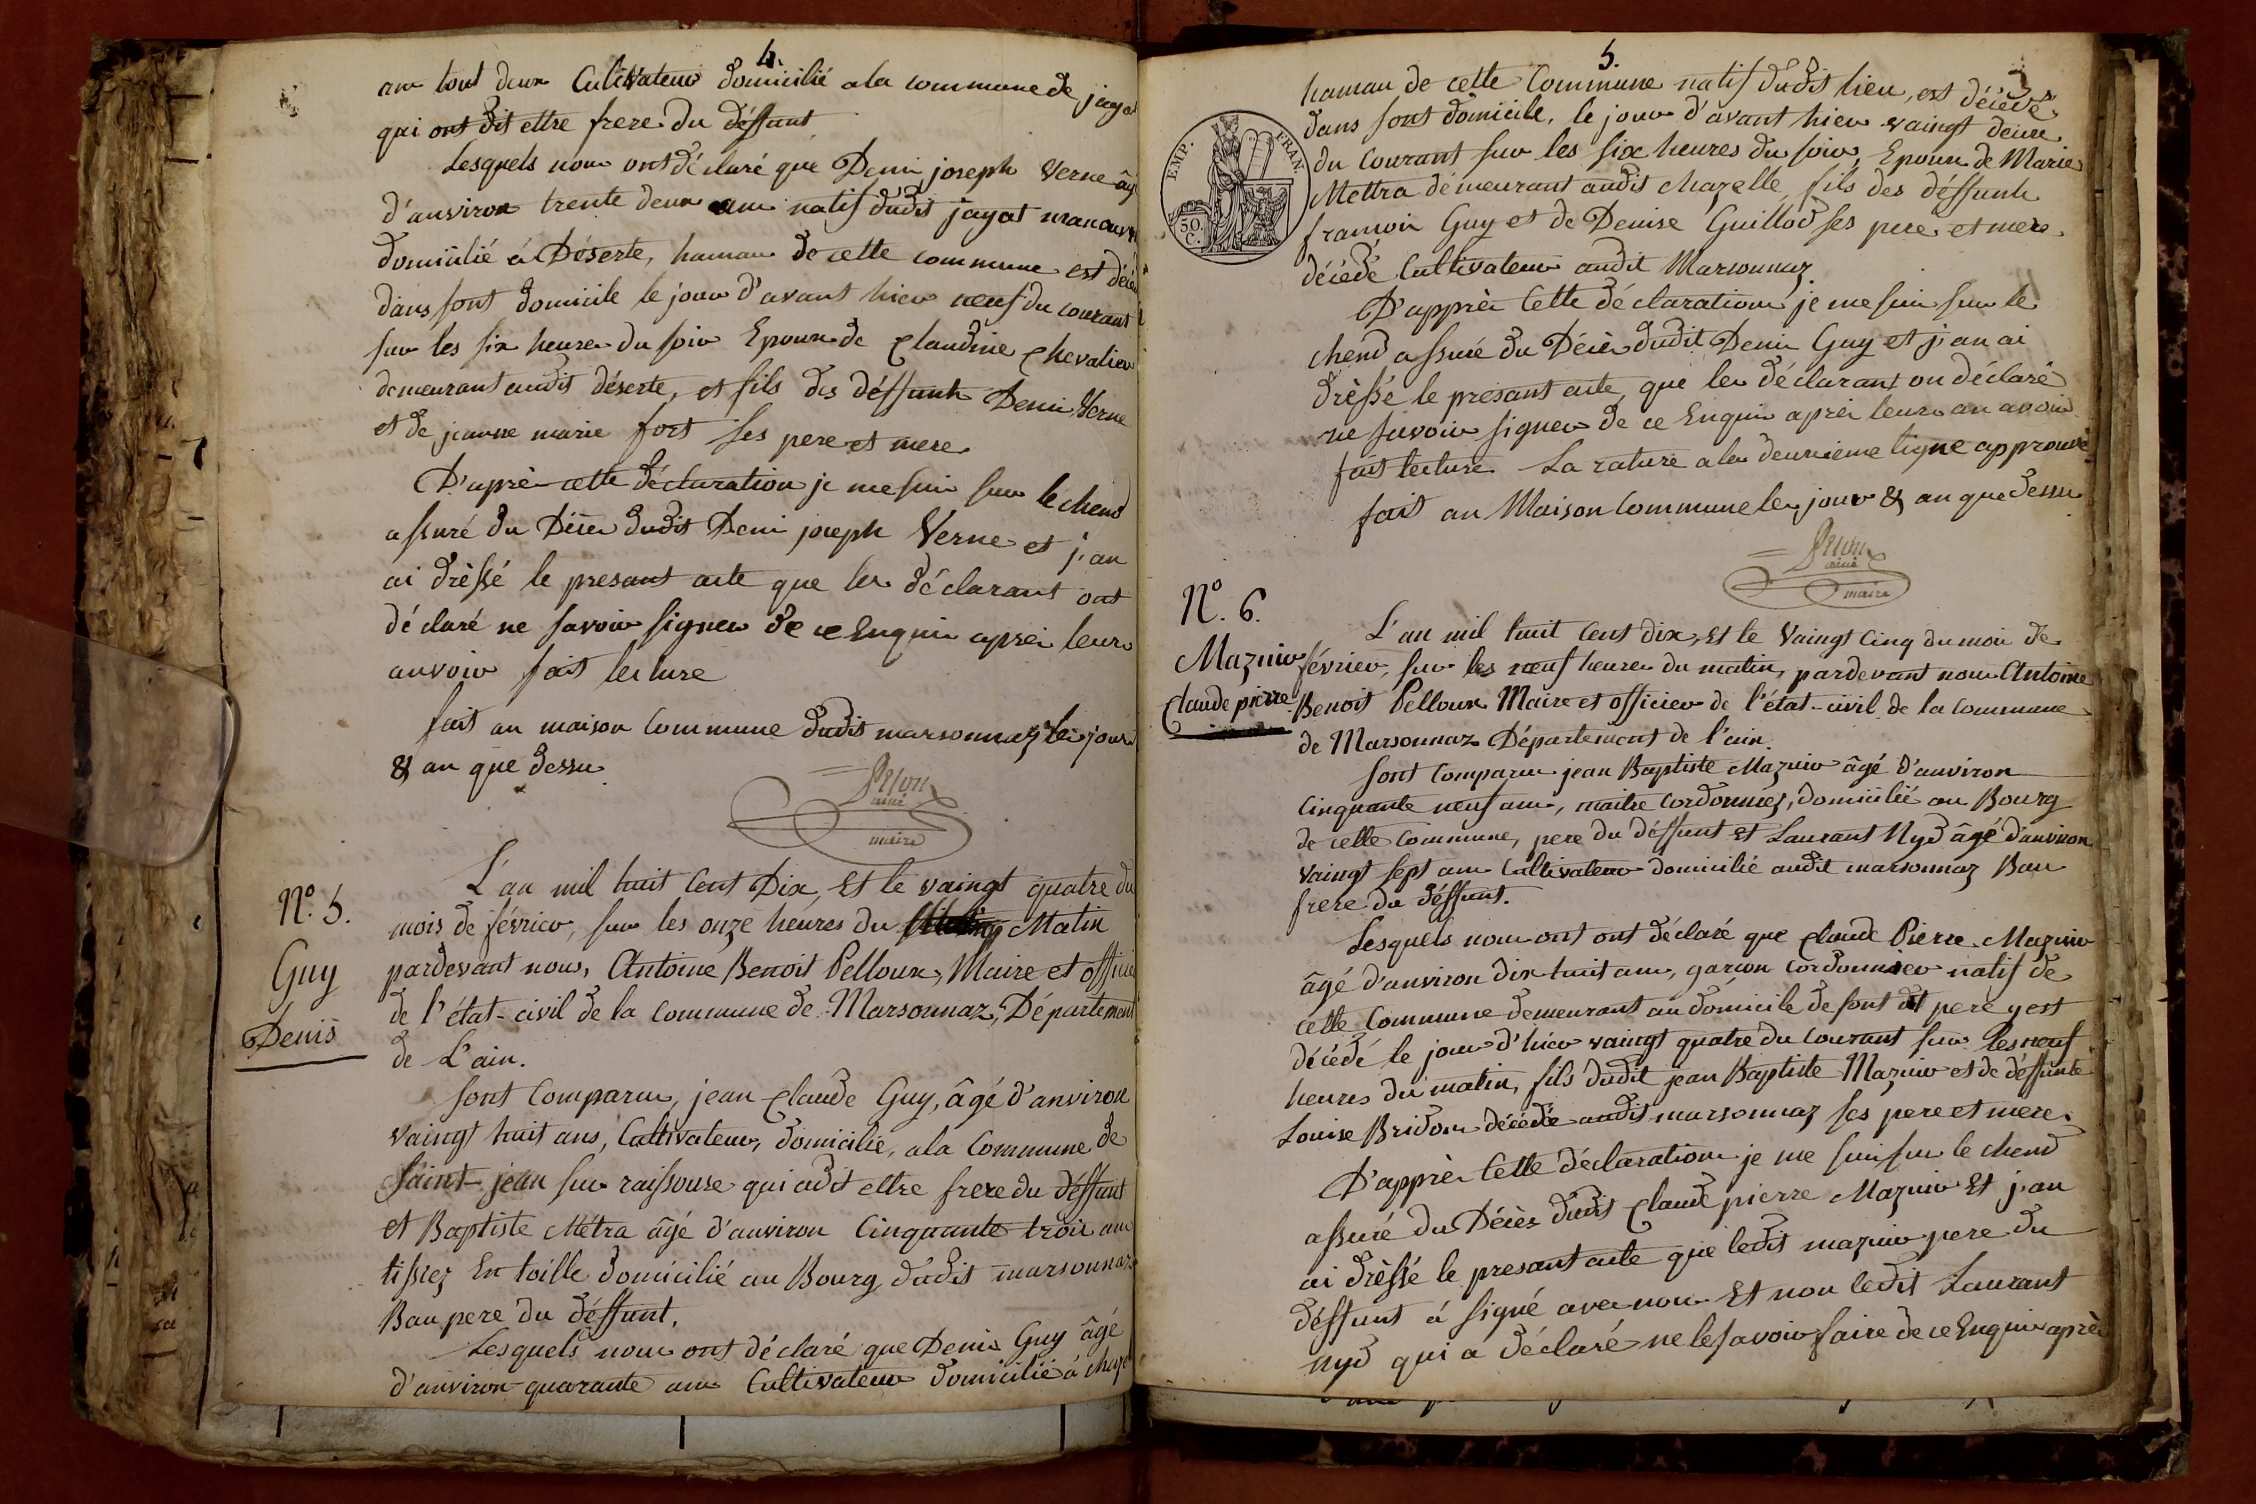 4.
ans tout deux Cultivateur domicilié a la commune de jayat
qui ont dit ettre frere du déffunt
Lesquels nous ont déclaré que Denis joseph Verne âgé
d'anviron trente deux ans natif dudit jayat manouvr
domicilié à Déserte, hamau de cette commune est décé
dans sont domicile le jour d'avant hier neuf du courant
sur les six heures du soir Epoux de Claudine Chevalier
demeurant audit déserte, et fils des déffunts Denis Verne
et de jeanne marie fort ses pere et mere
D'après cette déclaration je me suis sur le chend
assuré du Décès dudit Denis joseph Verne et j'an
ai drèssé le presant acte que les déclarant ont
déclaré ne savoir signer de ce Enquis après leurs
anvoir fait lecture
fait an maison Commune dudit marsonnaz les jour
& an que dessu
ainé
maire
Nº. 5.
Guy
Denis
L'an mil huit Cent Dix, Et le vaingt quatre du
mois de février, sur les onze heures du Matin
pardevant nous, Antoine Benoit Pelloux, Maire et officier
de l'état-civil de la commune de Marsonnaz, Département
de L'ain.
Sont Comparus, jean Claude Guy, âgé d'anviron
vaingt huit ans, Cultivateur, domicilié, a la Commune de
Saint-jean sur raissouse qui a dit ettre frere du déffunt
et Baptiste Métra âgé d'anviron Cinquante trois ans
tissiez En toille domicilié au Bourg dudit marsonnaz
Bau pere du déffunt.
Lesquels nous ont déclaré que Denis Guy âgé
d'anviron quarante ans Cultivateur domicilié à chaze
5.
EMP. FRAN.
50.
C.
hamau de cette Commune natif dudit lieu, est décédé
dans sont domicile, le jour d'avant hier vaingt deux
du Courant sur les six heures du soir, Epoux de Marie
Mettra demeurant audit chazelle, fils des déffunts
francois Guy et de Denise Guillod ses pere et mere
décédé Cultivateur audit Marsonnaz.
D'apprès Cette déclaration je me suis sur le
chend assuré du Décès dudit Denis Guy et j'an ai
drèssé le presant acte, que les déclarant on déclaré
ne savoir signer de ce Enquis après leurs an avoir
fait lecture La rature a la deuxieme ligne approuvé
fait an Maison Commune les jour & an que dessu
ainé
maire
Nº. 6.
Mazuir
Claude pierre
L'an mil huit Cent dix, Et le Vaingt Cinq du moi de
février, sur les neuf heures du matin, pardevant nous Antoine
Benoit Pelloux Maire et officier de l'état-civil de la commune
de Marsonnaz Département de l'ain.
Sont Comparus jean Baptiste Mazuir âgé d'anviron
Cinquante neuf ans, maitre Cordonniez, domicilié au Bourg
de cette Commune, pere du déffunt Et Laurant Nyd âgé d'anviron
vaingt sept ans Cultivateur domicilié audit marsonnaz Bau
frere du déffunt.
Lesquels nous ont ont déclaré que Claude Pierre Mazuir
âgé d'anviron dix huit ans, garcon cordonnier natif de
cette Commune demeurant au domicile de sont dit pere y est
décédé le jour d'hier vaingt quatre du Courant sur les neuf
heures du matin, fils dudit jean Baptiste Mazuir et de déffunte
Louise Bridon décédée audit marsonnaz ses pere et mere.
D'apprès Cette déclaration je me suis sur le chend
assuré du Décès dudit Claude pierre Mazuir Et j'an
ai drèssé le presant acte que ledit mazuir pere du
déffunt à signé avec nous Et non ledit Laurant
nyd qui a déclaré ne le savoir faire de ce Enquis après